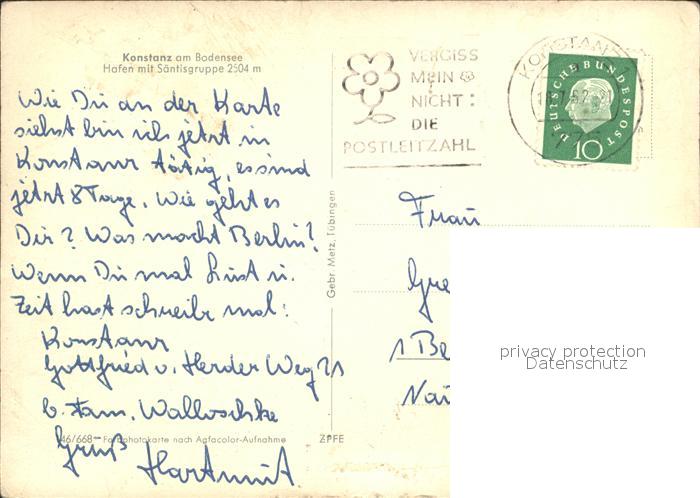 Konstanz am Bodensee
Hafen mit Säntisgruppe 2504 m
Wie Du an der Karte
siehst bin ich jetzt in
Konstanz tätig, es sind
jetzt 8 Tage. Wie geht es
Dir? Was macht Berlin?
Wenn Du mal Lust u.
Zeit hast schreibe mal:
Konstanz
Gottfried v. Herder Weg 21
b. Fam. Walloschke
Gruß
Hartmut
46/668 Farbphotokarte nach Agfacolor-Aufnahme
ZPFE
Gebr. Metz, Tübingen
VERGISS
MEIN
NICHT:
DIE
POSTLEITZAHL
KONSTANZ
DEUTSCHE BUNDESPOST
10
Frau
Gre
1 Be
privacy protection
Datenschutz